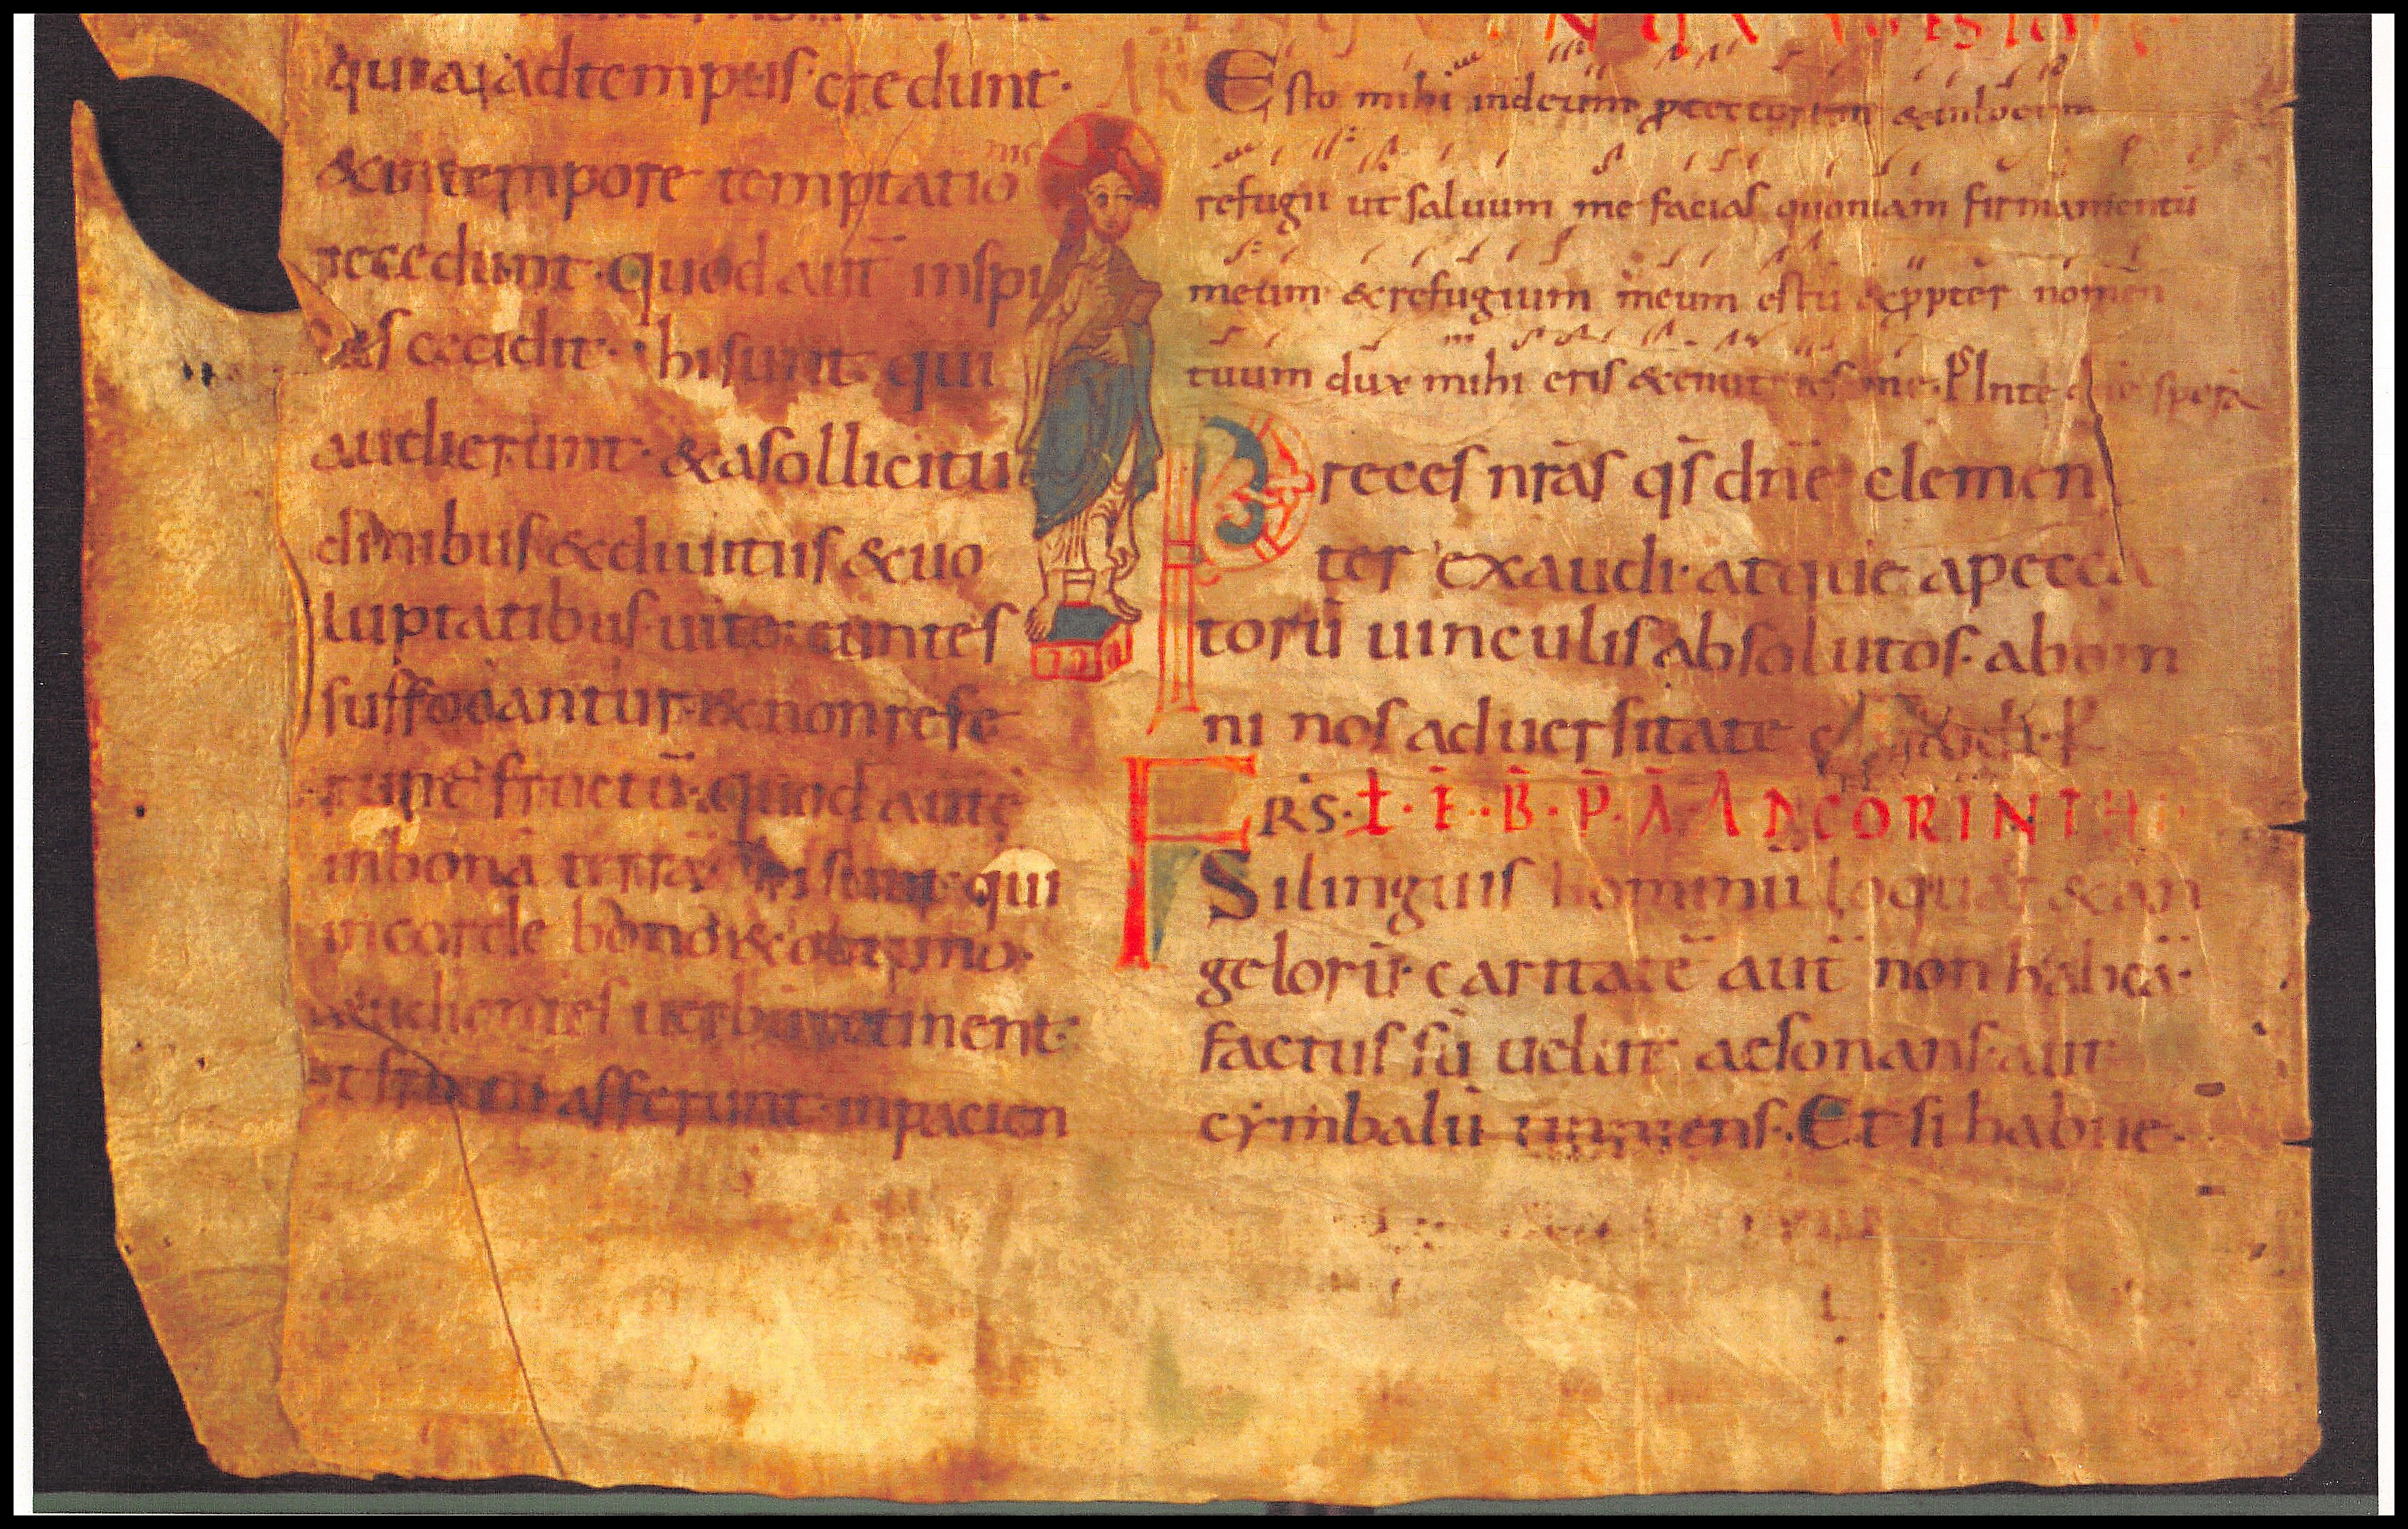 quia adtempus credunt·
&intempore temptatio
ne
recedunt· quod aut̄ inspi
nas cecidit· hi sunt qui
audierunt· &asollicitu
dinibus &diuitiis &uo
luptatibus uite euntes
suffocantur· &nonrefe
runt fructū· quod aute
inbonā terrā· hi sunt qui
incorde bono &optimo·
audientes uerbū retinent·
et fructū afferunt inpacien
Esto mihi indeum protectorem &inlocum
refugii ut saluum me facias quoniam firmamentū
meum &refugium meum estu &ppter nomen
tuum dux mihi eris &enutries me· Ps Inte dne spera
Preces nr̄as qs̄ dn̄e clemen
ter exaudi· atque apecca
torū uinculis absolutos· abom
ni nos aduersitate
FRS· Ł· Ē· B̄· P̄· Ā· ADCORINTH
Silinguis hominū loquar &an
gelorū· caritatē aut̄ non habeā·
factus sū uelut aesonans· aut
cymbalū tinniens· Et si habue·